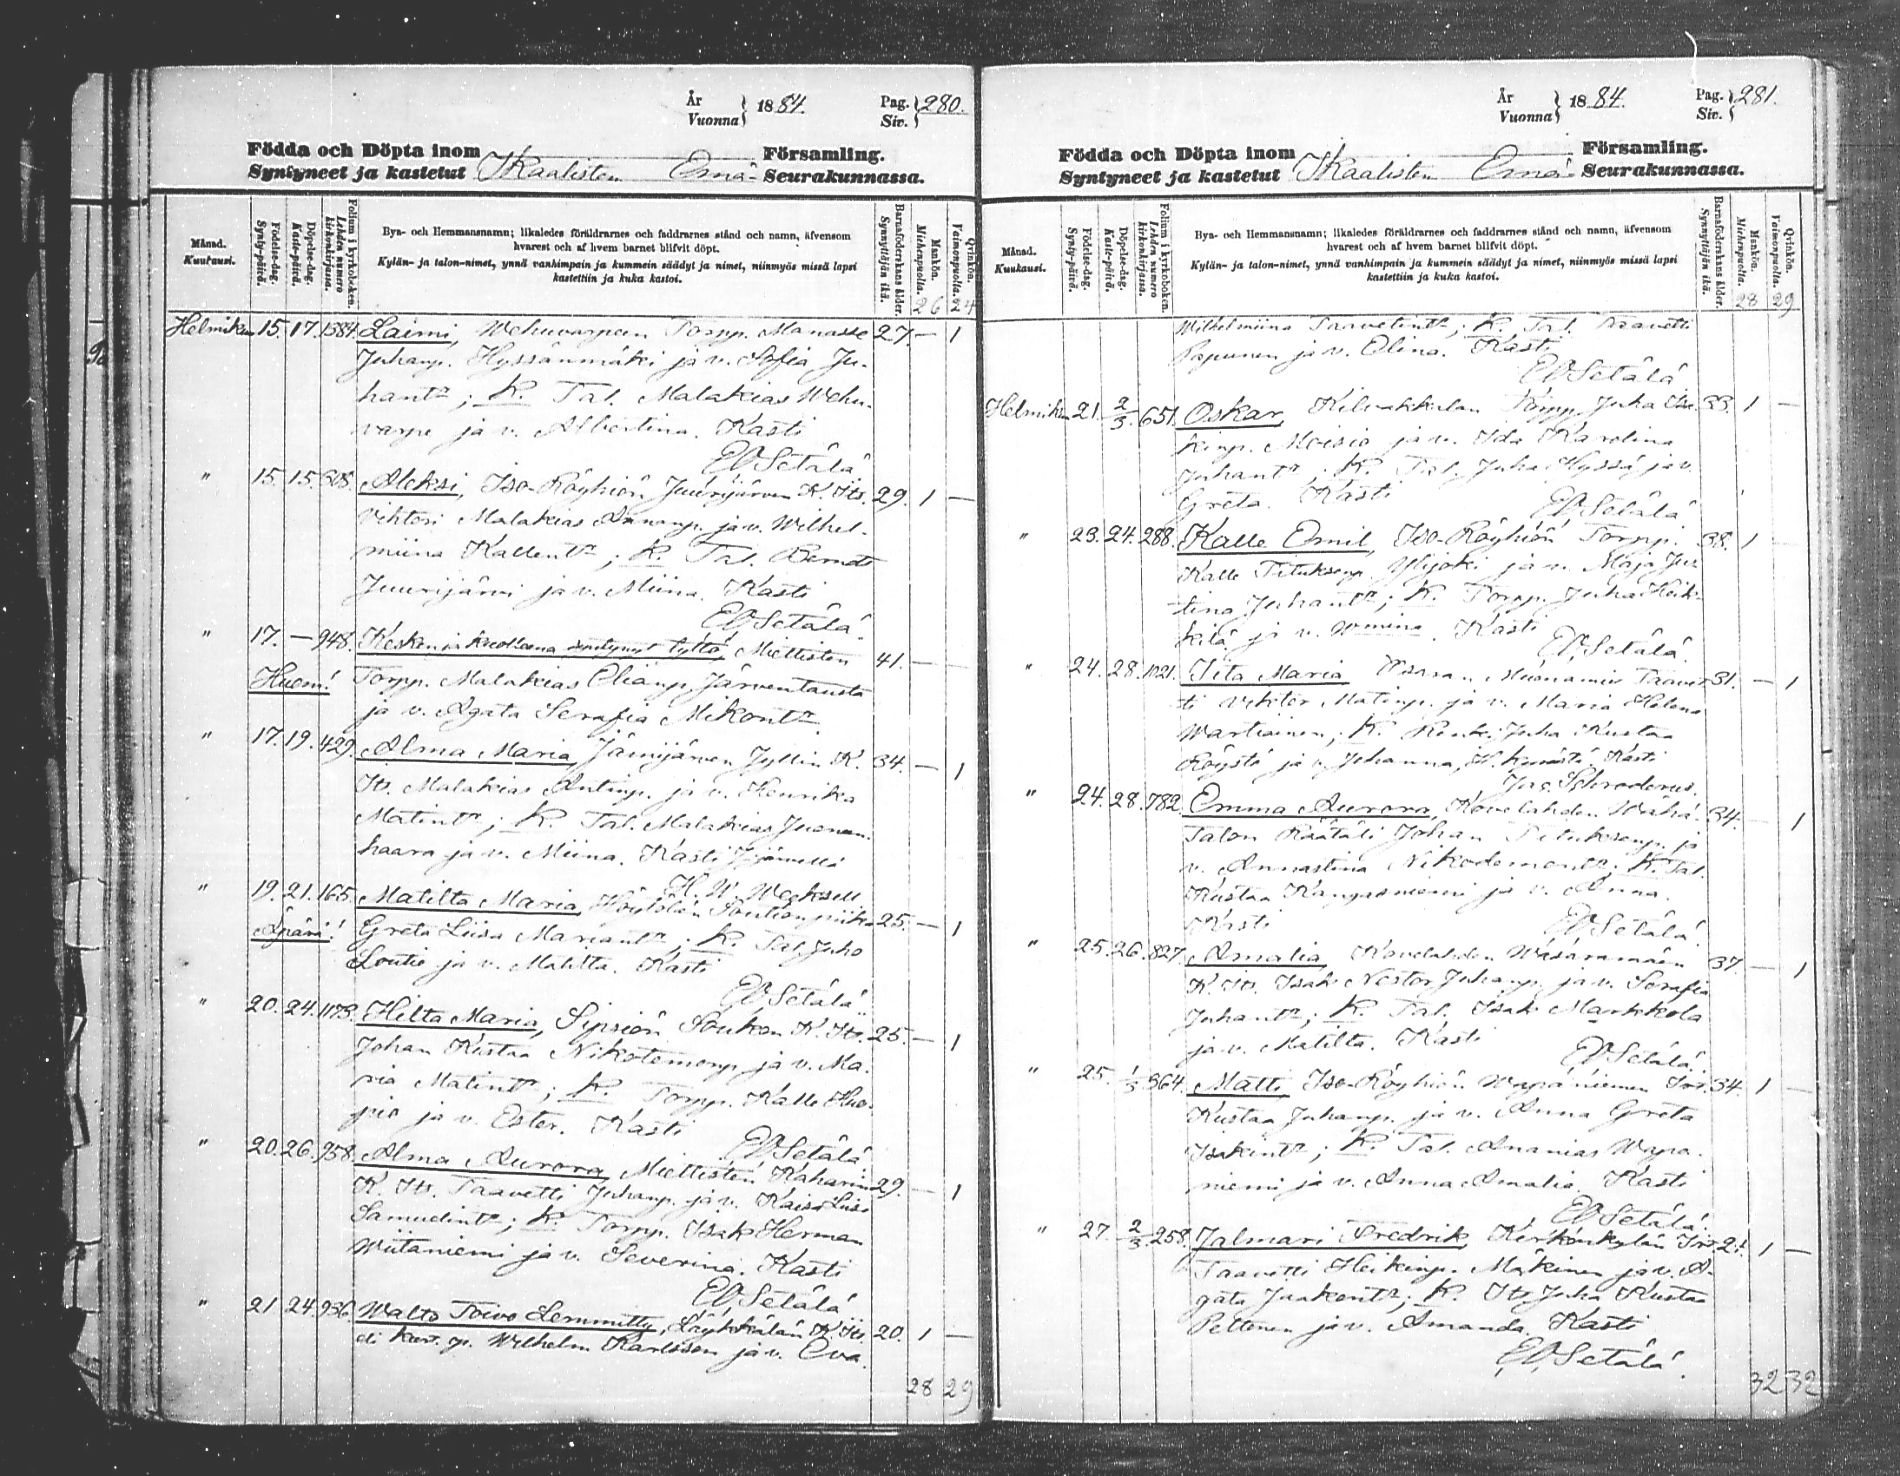 År 1884. Pag. 280.
Vuonna Siv.
Födda och Döpta inom Församling.
Syntyneet ja kastetut Ikaalisten Emä- Seurakunnassa.
Månad. Kuukausi.
Födelse-dag. Synty-päivä.
Döpelse-dag. Kaste-päivä.
Folium i kyrkoboken. Lehden numero kirkonkirjassa.
Bya- och Hemmansnamn; likaledes föräldrarnes och faddrarnes stånd och namn, äfvensom
hvarest och af hvem barnet blifvit döpt.
Kylän- ja talon-nimet, ynnä vanhimpain ja kummein säädyt ja nimet, niinmyös missä lapsi
kastettiin ja kuka kastoi.
Barnaföderskans ålder. Synnyttäjän ikä.
Mankön. Miehenpuolta. 26
Qvinkön. Vaimonpuolta. 24
Helmikuu 15. 17. 1584. Laimi, Wehuvarpeen Torpp. Manasse 27 — 1
Juhanp. Hyssänmäki ja v. Sofia Ju-
hantr; K. Tal. Malakias Wehu-
varpe ja v. Albertina. Kasti
EOSetälä.
" 15. 15. 608. Aleksi, Iso-Röyhiön Juurijärven K. Its. 29. 1 —
Vihtori Malakias Ananp. ja v. Wilhel-
miina Kallentr; K. Tal. Berndt
Juurijärvi ja v. Miina. Kasti
EOSetälä.
" 17. — 948. Keskenja kuolleena syntynyt tyttö, Miettisten 41. — —
Huom! Torpp. Malakias Elianp. Järventausta
ja v. Agata Serafia Mikontr.
" 17. 19. 429. Alma Maria, Jämijärven Jyllin K. 34. — 1
Its. Malakias Antinp. ja v. Henrika
Matintr; K. Tal. Malakias Juonen-
haara ja v. Miina. Kasti Jjärvellä
H. W. Wecksell
" 19. 21. 165. Matilta Maria, Höytölän Soution piika 25. — 1
Äpärä! Greta Liisa Mariantr; K. Tal. Juho
Soutio ja v. Matilta. Kasti
EOSetälä.
" 20. 24. 1173. Hilta Maria, Sipsiön Soukon K. Its. 25. — 1
Johan Kustaa Nikotemonp. ja v. Ma-
ria Matintr; K. Torpp. Kalle Huo-
pio ja v. Ester. Kasti
EOSetälä.
" 20. 26. 958. Alma Aurora, Miettisten Kahari 29. — 1
K. Its. Taavetti Juhanp. ja v. Kaisa Liisa
Samuelintr; K. Torpp. Isak Herman
Wiitaniemi ja v. Severina. Kasti
EOSetälä
" 21 24. 936. Walto Toivo Lemmitty, Läykkälän K. Its. 20. 1 —
Wilhelm Karlsson ja v. Eva
28 29
År 1884. Pag. 281.
Vuonna Siv.
Födda och Döpta inom Församling.
Syntyneet ja kastetut Ikaalisten Emä- Seurakunnassa.
Månad. Kuukausi.
Födelse-dag. Synty-päivä.
Döpelse-dag. Kaste-päivä.
Folium i kyrkoboken. Lehden numero kirkonkirjassa.
Bya- och Hemmansnamn; likaledes föräldrarnes och faddrarnes stånd och namn, äfvensom
hvarest och af hvem barnet blifvit döpt.
Kylän- ja talon-nimet, ynnä vanhimpain ja kummein säädyt ja nimet, niinmyös missä lapsi
kastettiin ja kuka kastoi.
Barnaföderskans ålder. Synnyttäjän ikä.
Mankön. Miehenpuolta. 28
Qvinkön. Vaimonpuolta. 29
Wilhelmiina Taavetintr; K. Tal. Taavetti
Papunen ja v. Elina. Kasti
EOSetälä
Helmikuu 21. 2/3. 651. Oskar, Kilvakkalan Torpp. Juha Isa- 33. 1 —
kinp. Moisio ja v. Ida Karolina
Juhantr; K. Tal. Juha Hyssä ja v.
Greta. Kasti
EOSetälä
" 23. 24. 288. Kalle Emil, Iso-Röyhiön Torpp. 38. 1 —
Kalle Tituksenp. Ylijoki ja v. Maja Jus-
tina Juhantr; K. Torpp. Juha Heik-
kilä ja v. Wmina. Kasti
EOSetälä.
" 24. 28. 1021. Iita Maria, Muonamies Taavet- 31. — 1
ti Vihtor Matinp. ja v. Maria Helena
Wartiainen; K. Juha Kustaa
Röystö ja v. Johanna, Kasti
Jac. Schroderus.
" 24. 28. 782. Emma Aurora, Kovelahden Wähä- 34. — 1
Talon Räätäli Johan Tituksenp. ja
v. Annastina Nikodemontr; K. Tal.
Kustaa Kangasniemi ja v. Anna.
Kasti EOSetälä.
" 25. 26. 827. Amalia, Kovelahden Wasaramäen 37. — 1
K. Its. Isak Nestor Juhanp. ja v. Serafia
Juhantr; K. Tal. Isak Markkola
ja v. Matilta. Kasti
EOSetälä.
" 25. 1/3 364. Matti, Iso-Röyhiön Wapaniemen 34. 1 —
Kustaa Juhanp. ja v. Anna Greta
Isakintr; K. Tal. Ananias Wapa-
niemi ja v. Anna Amalia. Kasti
EOSetälä.
" 27. 2/3. 258. Jalmari Fredrik, Kirkonkylän 21. 1 —
Taavetti Heikinp. Mäkinen ja v. A-
gata Jaakontr; K. Its. Juha Kustaa
Pettonen ja v. Amanda. Kasti
EOSetälä.
32 32